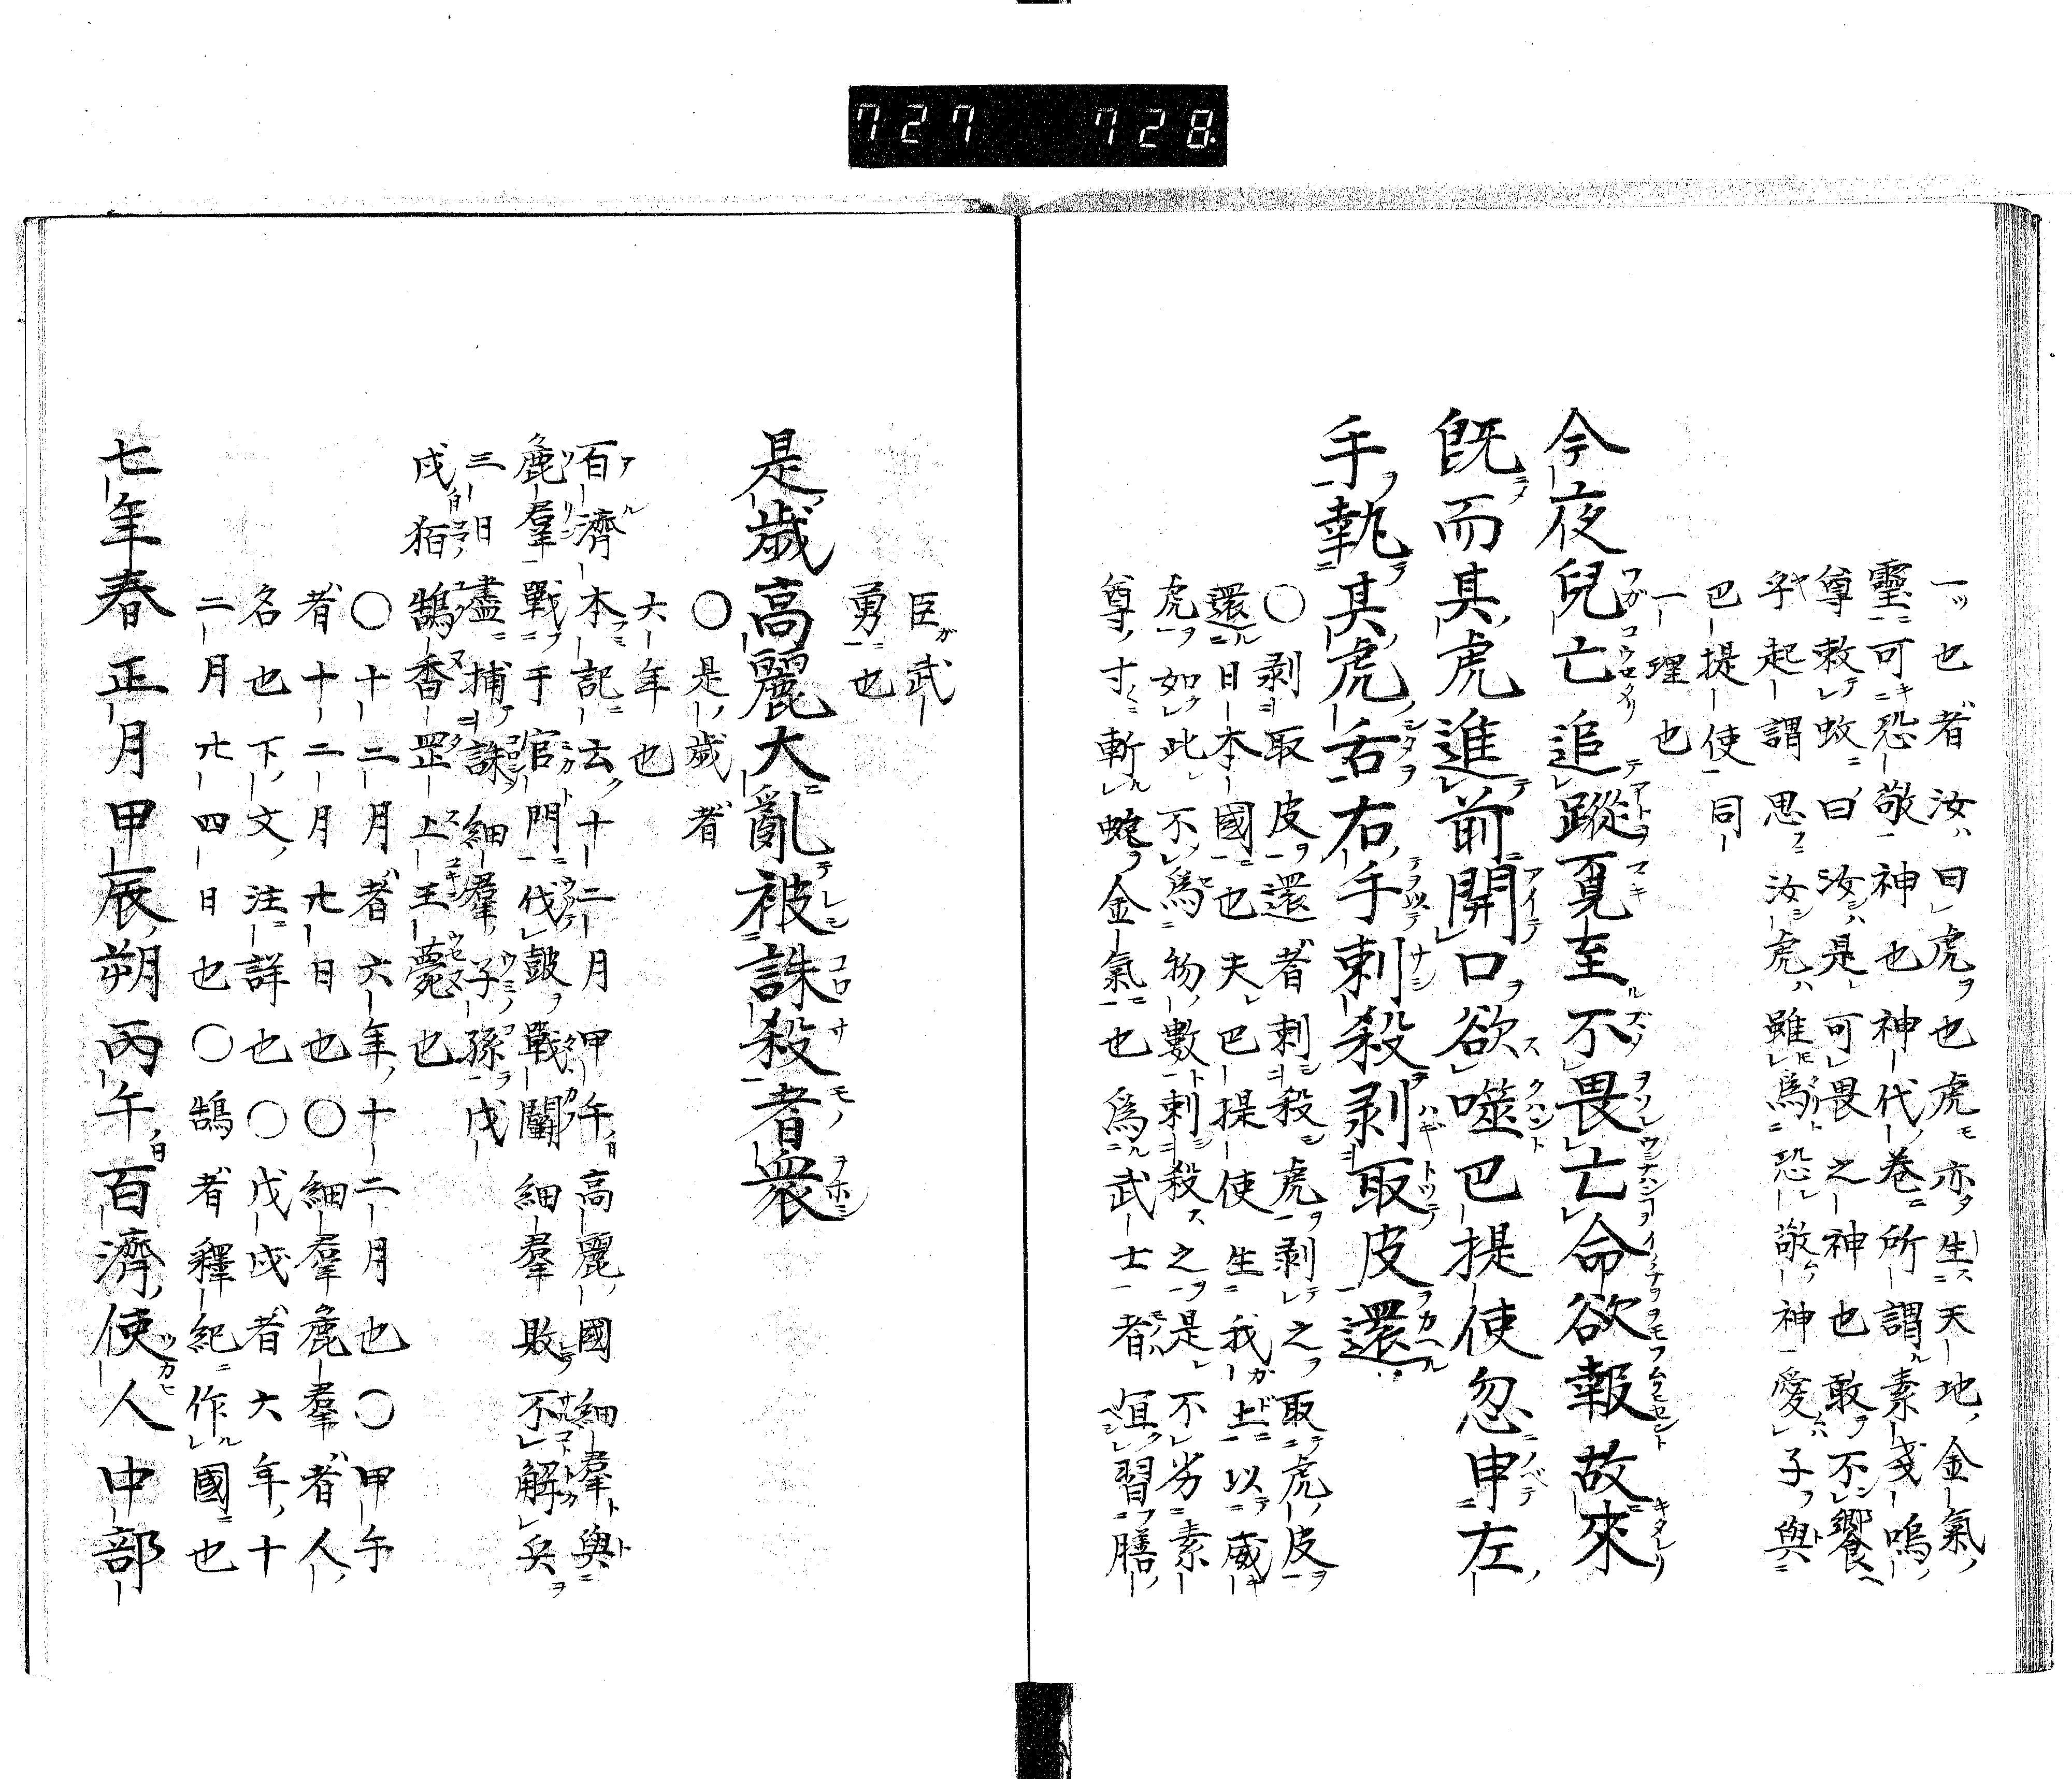 727 728
一也者汝曰虎也虎亦生天地金氣
靈可恐敬神也神代卷所謂素戔嗚
尊敕蚊曰汝是可畏之神也敢不饗
乎起謂思汝虎雖爲恐敬神愛子與
巴提使同
一理也
今夜兒亡追蹤覓至不畏亡命欲報故來
既而其虎進前開口欲噬巴提使忽申左
手執其虎舌右手刺殺剥取皮還
○剥取皮還者刺殺虎剥之取虎皮
還日本國也夫巴提使生我上以威
虎如此不爲物數刺殺之是不劣素
尊寸斬蛇金氣也爲武士者宜習膳
臣武
勇也
是歳高麗大亂被誅殺者衆
○是歳者
六年也
百濟本記云十二月甲午高麗國細羣與
麁羣戰于宮門伐鼓戰鬪細羣敗不解兵
三日盡捕誅細羣子孫戊
戌狛鵠香罡上王薨也
○十二月者六年十二月也○甲午
者十二月廿日也○細羣麁羣者人
名也下文注詳也○戊戌者六年十
二月廿四日也○鵠者釋紀作國也
七年春正月甲辰朔丙午百濟使人中部